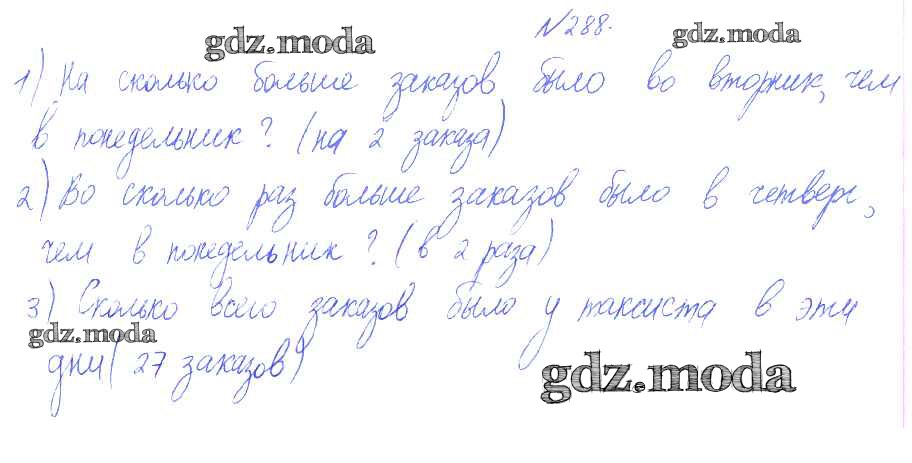 №288.
gdz.moda gdz.moda
1) На сколько больше заказов было во вторник, чем
в понедельник? (на 2 заказа)
2) Во сколько раз больше заказов было в четверг,
чем в понедельник? (в 2 раза)
3) Сколько всего заказов было у таксиста в эти
gdz.moda
дни (27 заказов)
gdz.moda